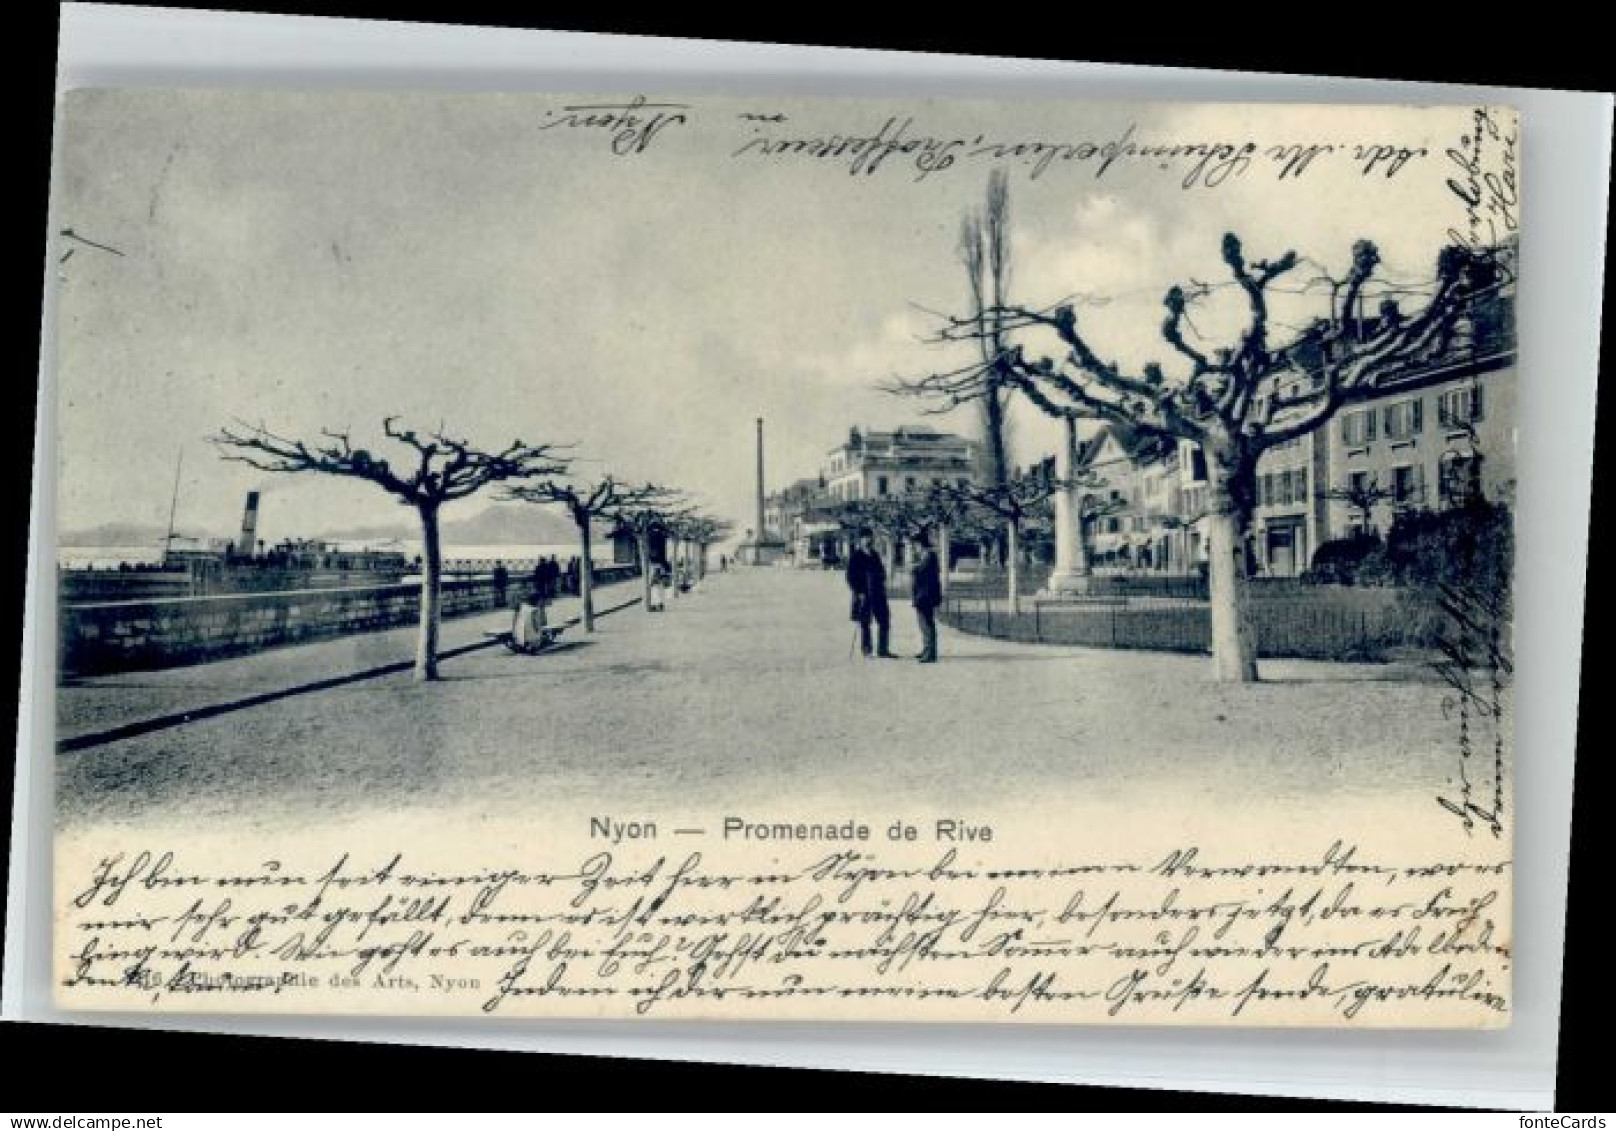 Adr. Mr Schümperlin, Proffesseur,
in
Nyon.
Nyon — Promenade de Rive
Ich bin nun seit einiger Zeit hier in Nyon bei meinen Verwandten, wo es
mir sehr gut gefällt, denn es ist wirklich prächtig hier, besonders jetzt, da es Früh-
ling wird. Wie geht es auch bei Euch? Gehst Du nächsten Sommer auch wieder ins
Photographie des Arts, Nyon
Indem ich Dir nun meine besten Grüße sende, gratulire
Dir auch Verlobung